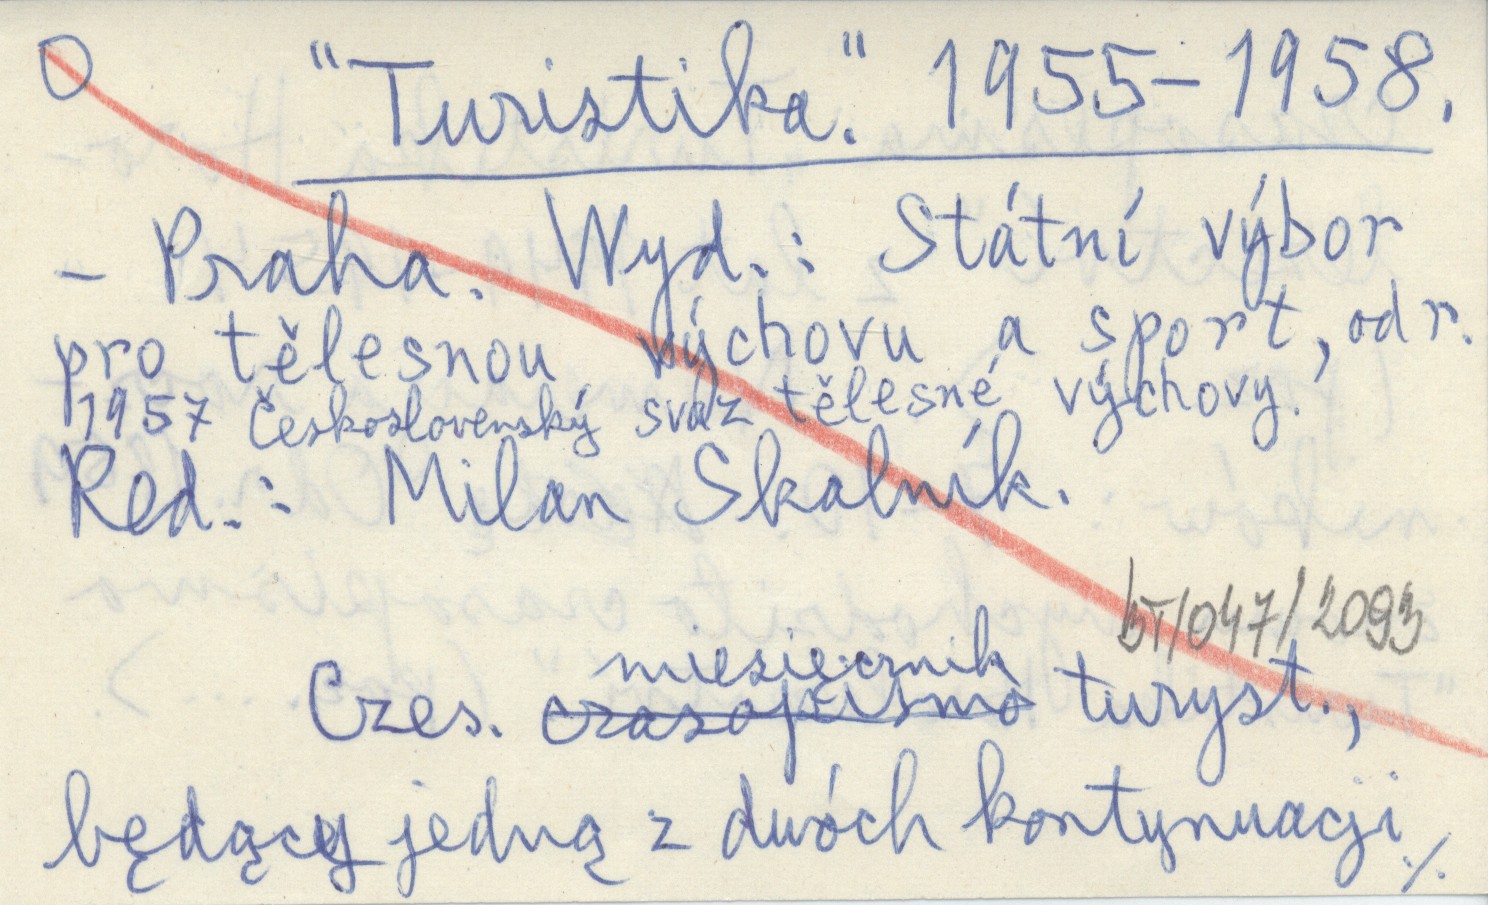 O "Turistika." 1955-1958.
- Praha. Wyd.: Státní výbor
pro tělesnou výchovu a sport, od r.
1957 Československý svaz tělesné výchovy.
Red.: Milan Skalník.
BT/047/2093
miesięcznik
Czes. czasopismo turyst.,
będący jedną z dwóch kontynuacji ./.